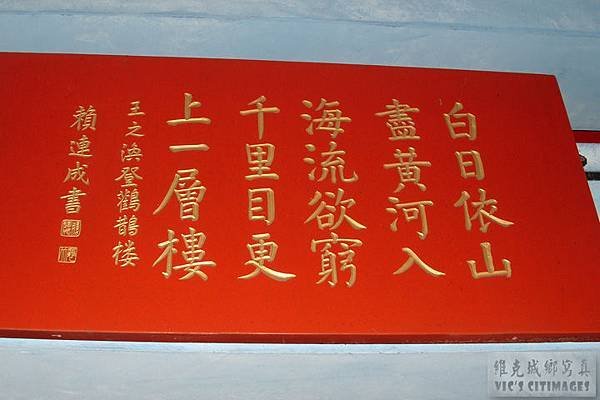 白日依山
盡黃河入
海流欲窮
千里目更
上一層樓
王之渙登鸛鵲楼
賴連成書
維克城鄉寫真
VIC'S CITIMAGES